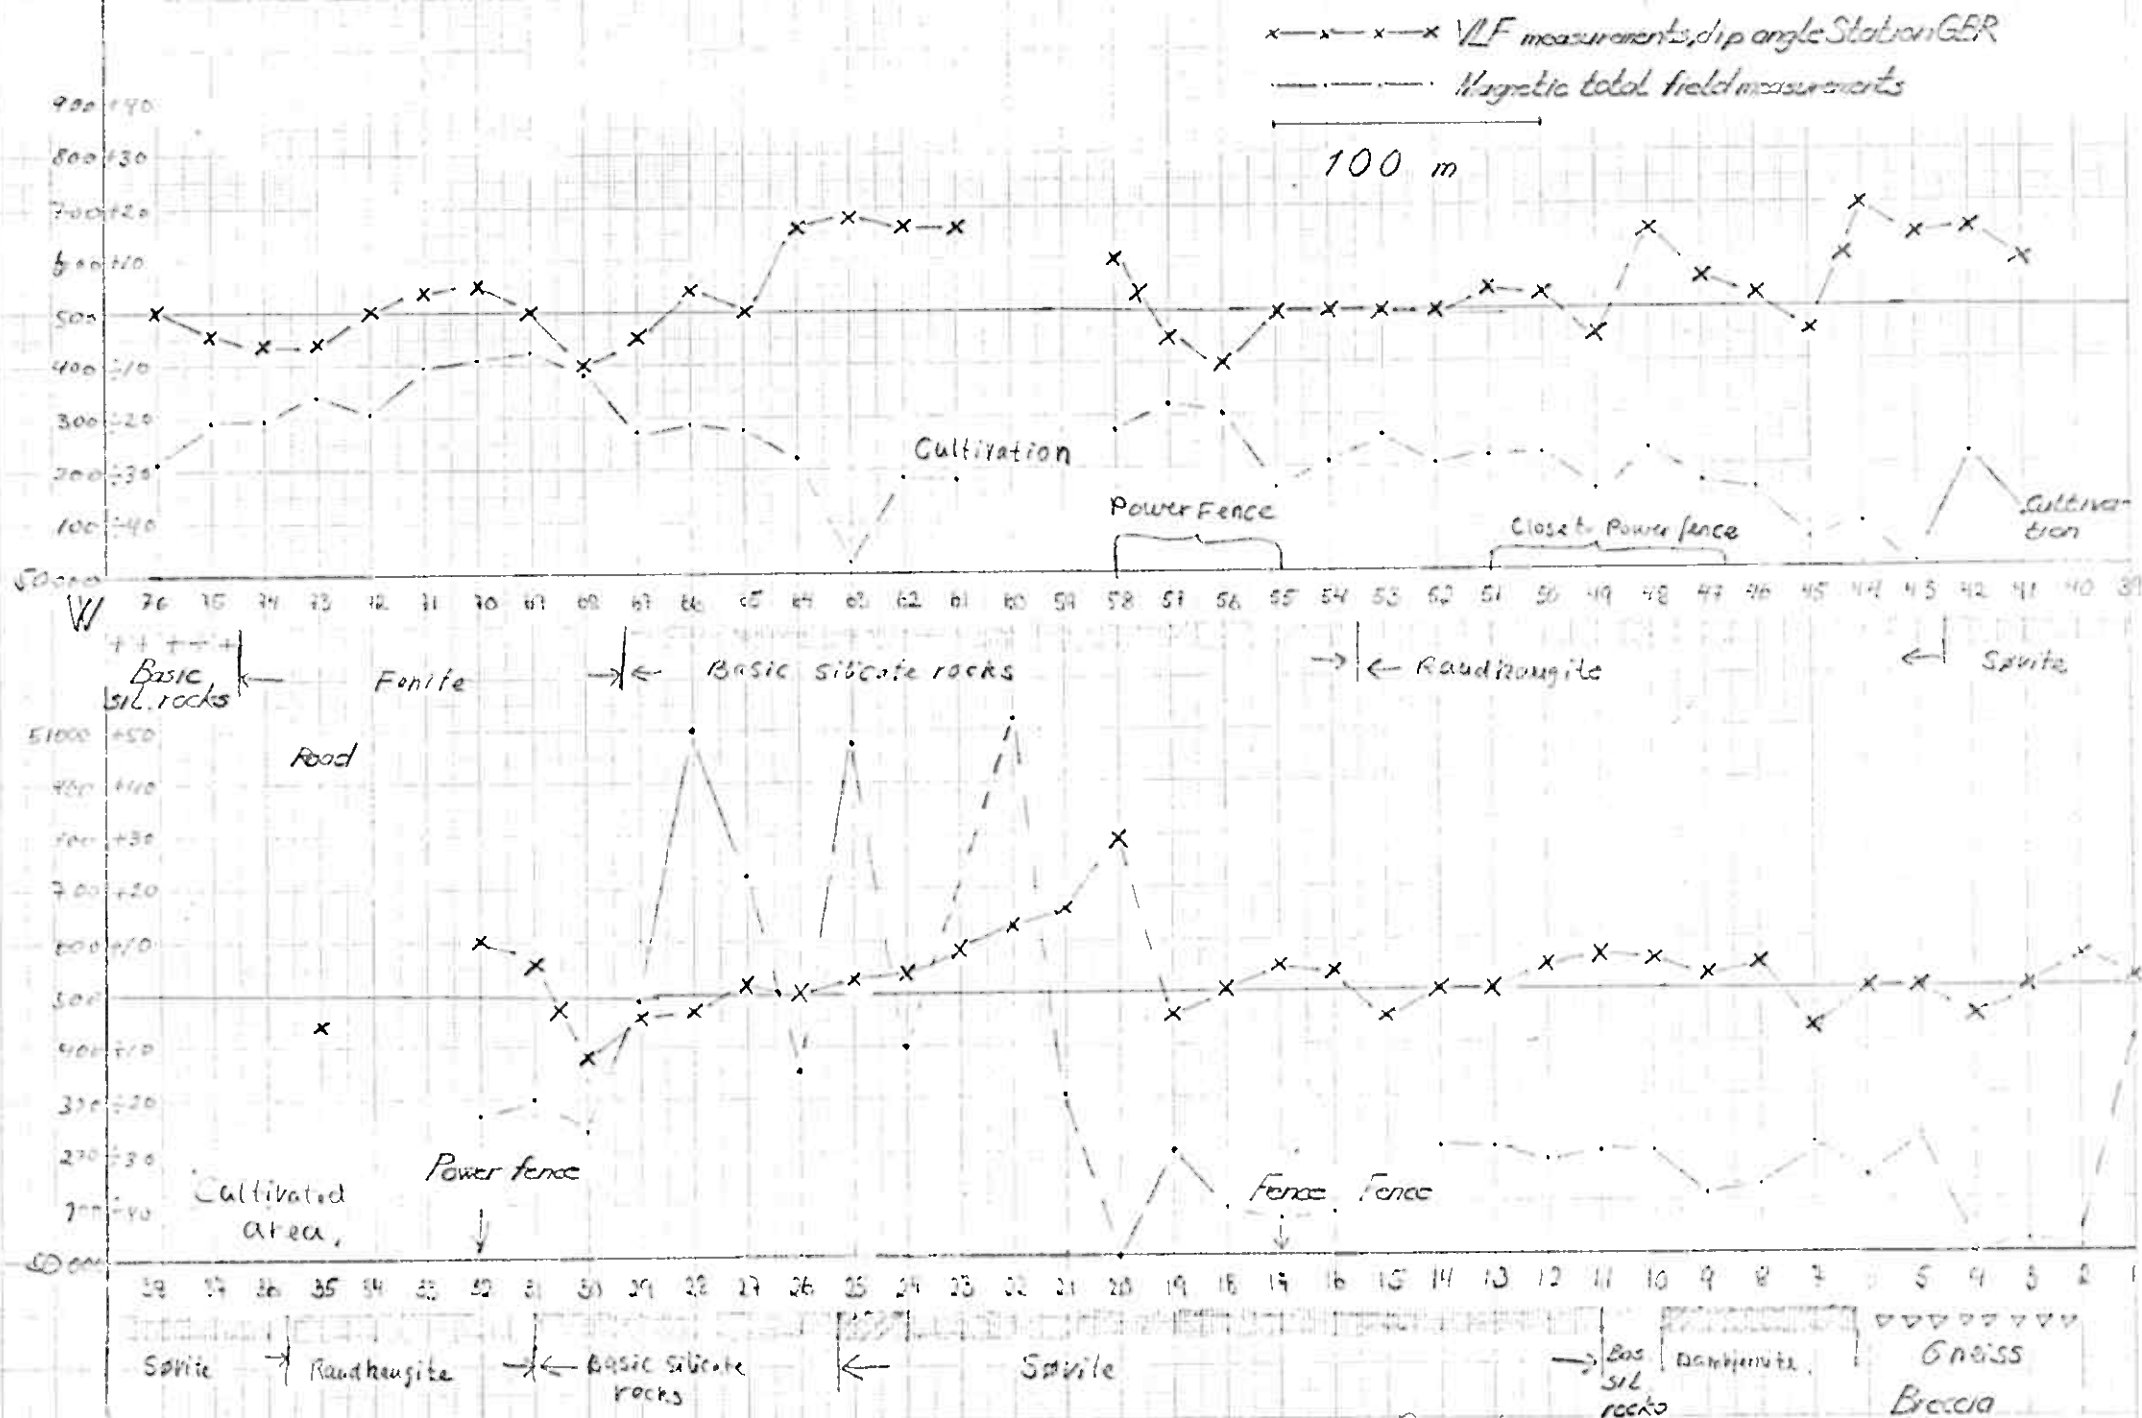 x—x—x—x VLF measurements, dip angle Station GBR
—·—·—·— Magnetic total field measurements
100 m
900 +40
800 +30
700 +20
600 +10
500
400 ÷10
300 ÷20
200 ÷30
100 ÷40
50000
Cultivation
Power Fence
Close to Power fence
Cultiva-
tion
W 76 75 74 73 72 71 70 69 68 67 66 65 64 63 62 61 60 59 58 57 56 55 54 53 52 51 50 49 48 47 46 45 44 43 42 41 40 39
+ + + + +
Basic
sil. rocks
Fenite
Basic silicate rocks
Raudhaugite
Søvite
51000 +50
900 +40
800 +30
700 +20
600 +10
500
400 ÷10
300 ÷20
200 ÷30
100 ÷40
50000
Road
Cultivated
area.
Power fence
Fence Fence
38 37 36 35 34 33 32 31 30 29 28 27 26 25 24 23 22 21 20 19 18 17 16 15 14 13 12 11 10 9 8 7 5 4 3 2 1
Søvite
Raudhaugite
Basic silicate
rocks
Søvite
Bas
sil
rocks
Damtjernite.
Gneiss
Breccia